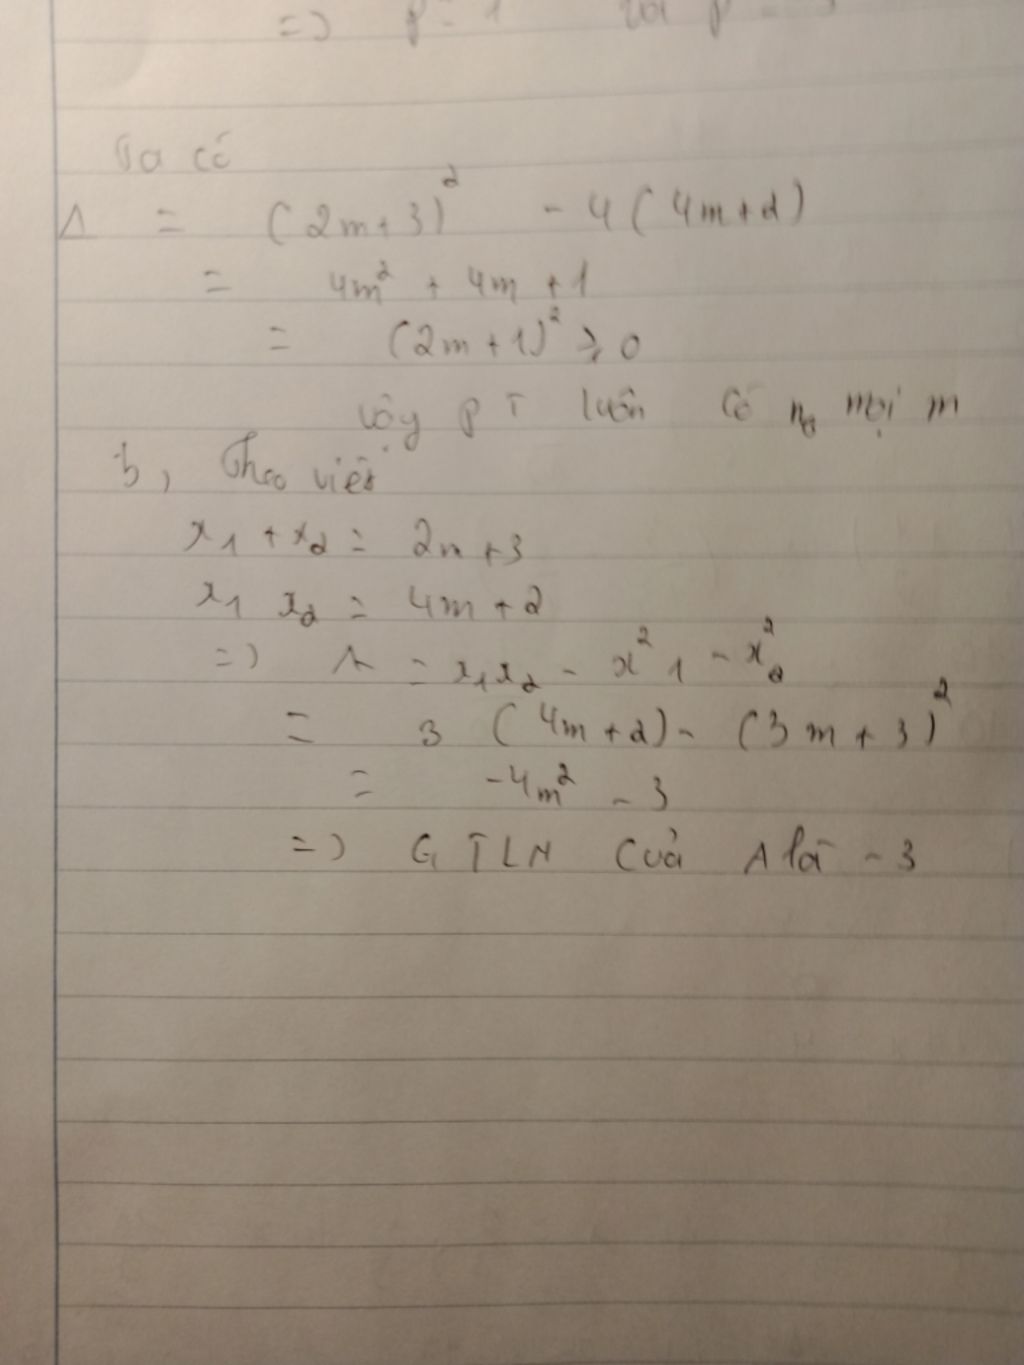 => p = 1
Ta có
Δ = (2m+3)² - 4(4m+2)
= 4m² + 4m + 1
= (2m+1)² ≥ 0
Vậy PT luôn có n₀ mọi m
b, Theo viét
x₁ + x₂ = 2m+3
x₁ x₂ = 4m+2
=> A = x₁x₂ - x²₁ - x₂²
= 3 (4m+2) - (3m+3)²
= -4m² - 3
=> GTLN của A là - 3